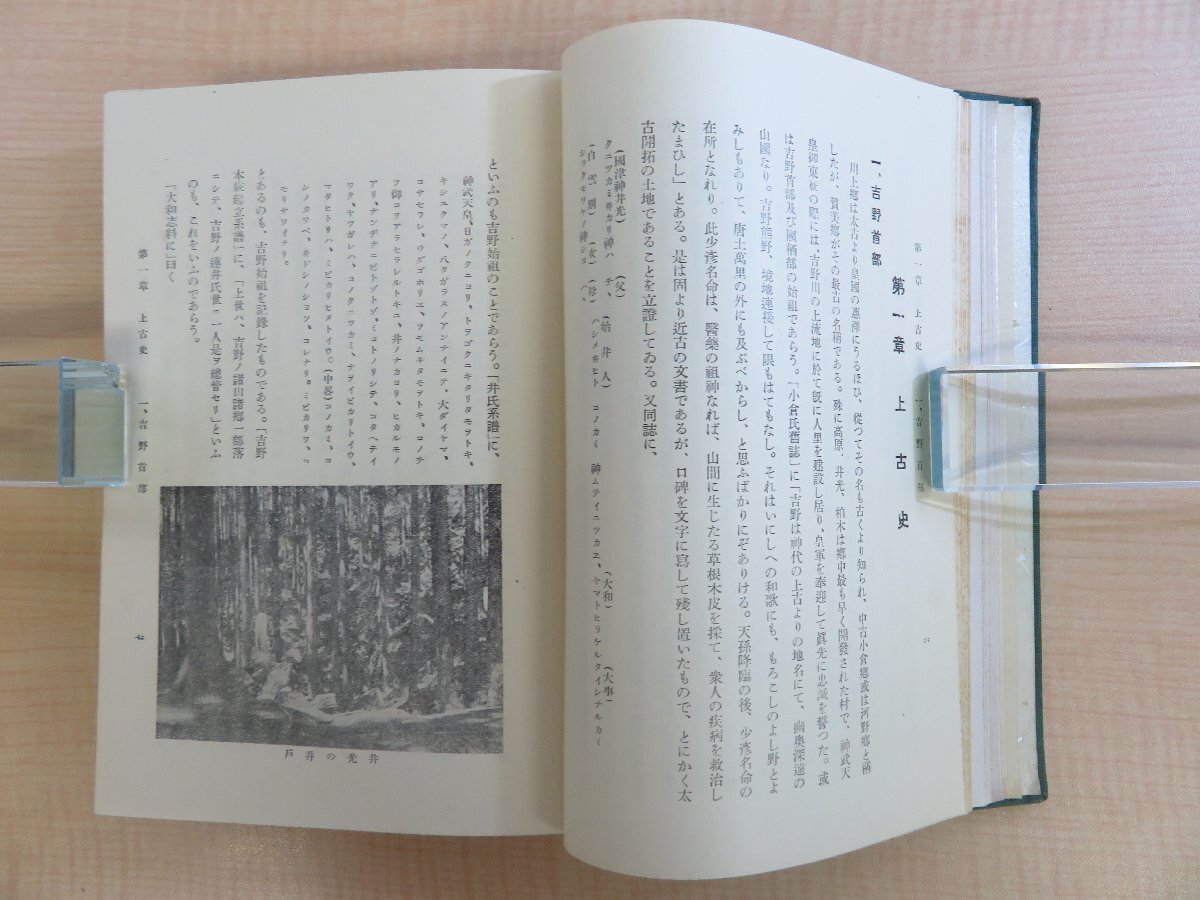 第一章 上古史 一、吉野首部 六
第一章 上古史
一、吉野首部
川上鄕は太古より皇國の惠澤にうるほひ、從つてその名も古くより知られ、中古小倉鄕或は河野鄕と稱
したが、賀美鄕がその最古の名稱である。殊に高原、井光、柏木は鄕中最も早く開發された村で、神武天
皇御東征の際には、吉野川の上流地に於て旣に人里を建設し居り、皇軍を奉迎して眞先に忠誠を誓つた。或
は吉野首部及び國栖部の始祖であらう。「小倉氏舊誌」に「吉野は神代の上古よりの地名にて、幽奥深遠の
山國なり。吉野熊野、境地連接して限もはてもなし。それはいにしへの和歌にも、もろこしのよし野とよ
みしもありて、唐土萬里の外にも及ぶべからし、と思ふばかりにぞありける。天孫降臨の後、少彥名命の
在所となれり。此少彥名命は、醫藥の祖神なれば、山間に生じたる草根木皮を採て、衆人の疾病を救治し
たまひし」とある。是は固より近古の文書であるが、口碑を文字に寫して殘し置いたもので、とにかく太
古開拓の土地であることを立證してゐる。又同誌に、
(國津神井光) (父) (始井人) (大和) (大事)
クニツカミヰカリ神ハ チ、 ハシメヰヒト コノカミ 神ムテイニツカエ、ヤマトヒラケルタイシナルカミ
(白雲別) (女)
シラクモワケノ神ショ ハ、
といふのも吉野始祖のことであらう。「井氏系譜」に、
神武天皇、日ガノクニヨリ、トヲゴクニキタリタモヲトキ、
キシユクマノ、ハタガラスノアンナイニテ、大ダイヤマ、
コサセワレ、ウダゴホリエ、ヲモムキタモヲトキ、コノチ
フ御コヲアラセラレルトキニ、井ノナカヨリ、ヒカルモノ
アリ、ナンヂナニビトゾトゾ、ミコトノリシテ、コタヘテイ
ワク、ヤワガレハ、コノクニツカミ、ナヲイビカリトイウ、
マタヒトリハ、ミビカリヒメトイウ○(中畧)コノカミ、コ
シノカワベ、井ドシノショヲ、コレナリ。ミビカリワ、コ
モリサワイナリ。
とあるのも、吉野始祖を記錄したものである。「吉野
本錠起立系譜」に、「上世ハ、吉野ノ諸山諸鄕一部落
ニシテ、吉野ノ連井氏世ニ一人是ヲ總管セリ」といふ
のも、これをいふのであらう。
「大和志料」に曰く
井光の井戶
第一章 上古史 一、吉野首部 七